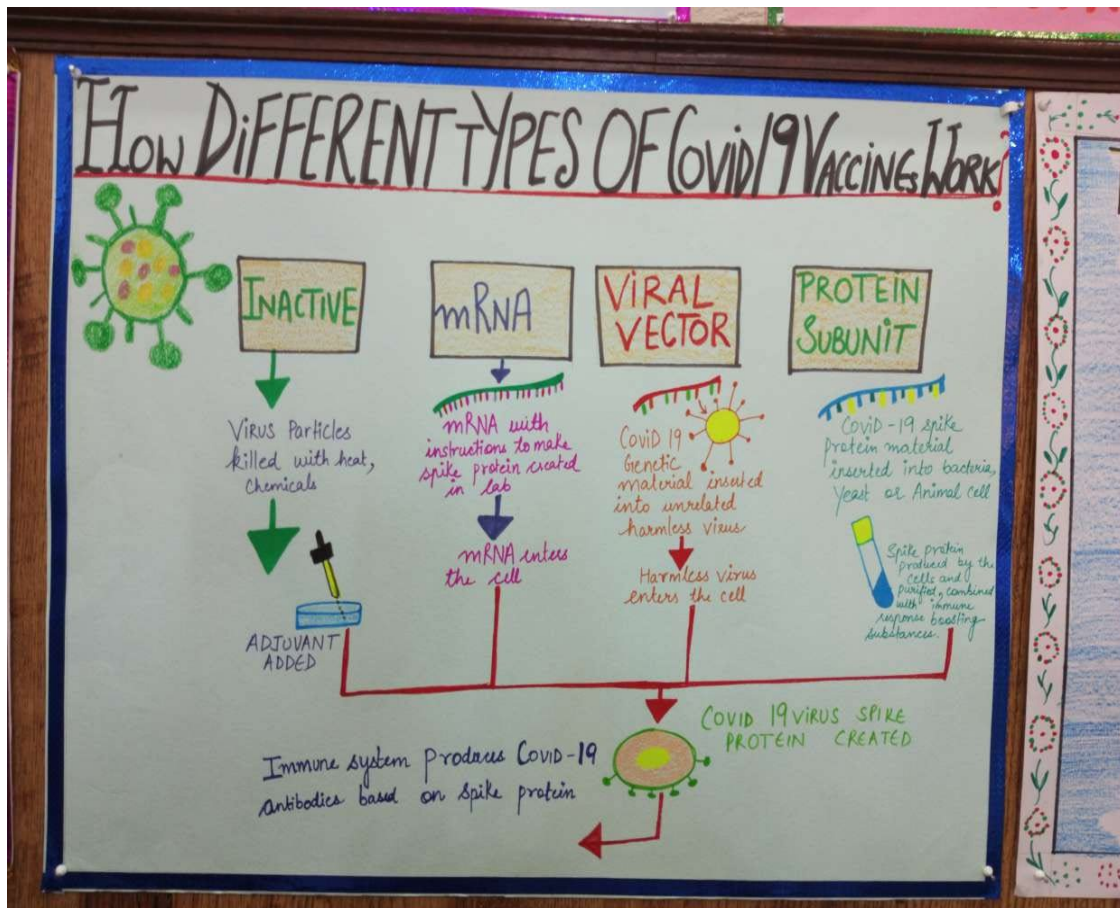 How DiFFERENT TYPES OF Covid19 VACCINEs WORK!
INACTIVE
VIRUS Particles
killed with heat,
Chemicals
ADJUVANT
ADDED
mRNA
mRNA with
instructions to make
spike protein created
in lab
mRNA enters
the cell
VIRAL
VECTOR
CoviD 19
Genetic
material inserted
into unrelated
harmless virus
Harmless virus
enters the cell
PROTEIN
SUBUNiT
CoviD-19 spike
Protein material
inserted into bacteria,
Yeast or Animal cell
Spike protein
produced by the
cells and
purified, combined
with immune
response boosting
substances.
COVID 19 VIRUS SPIKE
PROTEIN CREATED
Immune system produces Covid-19
antibodies based on spike protein